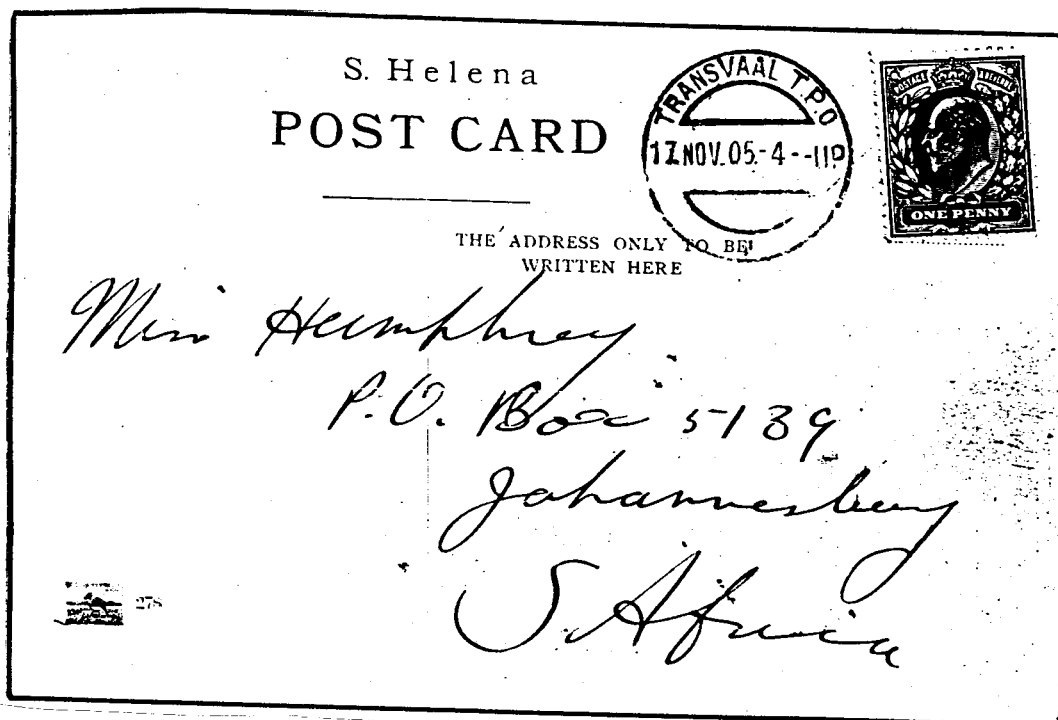 S. Helena
POST CARD
TRANSVAAL T.P.O
17 NOV. 05-4--11P
POSTAGE REVENUE
ONE PENNY
THE ADDRESS ONLY TO BE
WRITTEN HERE
Miss Humphrey
P.O. Box 5139
Johannesburg
S. Africa
278